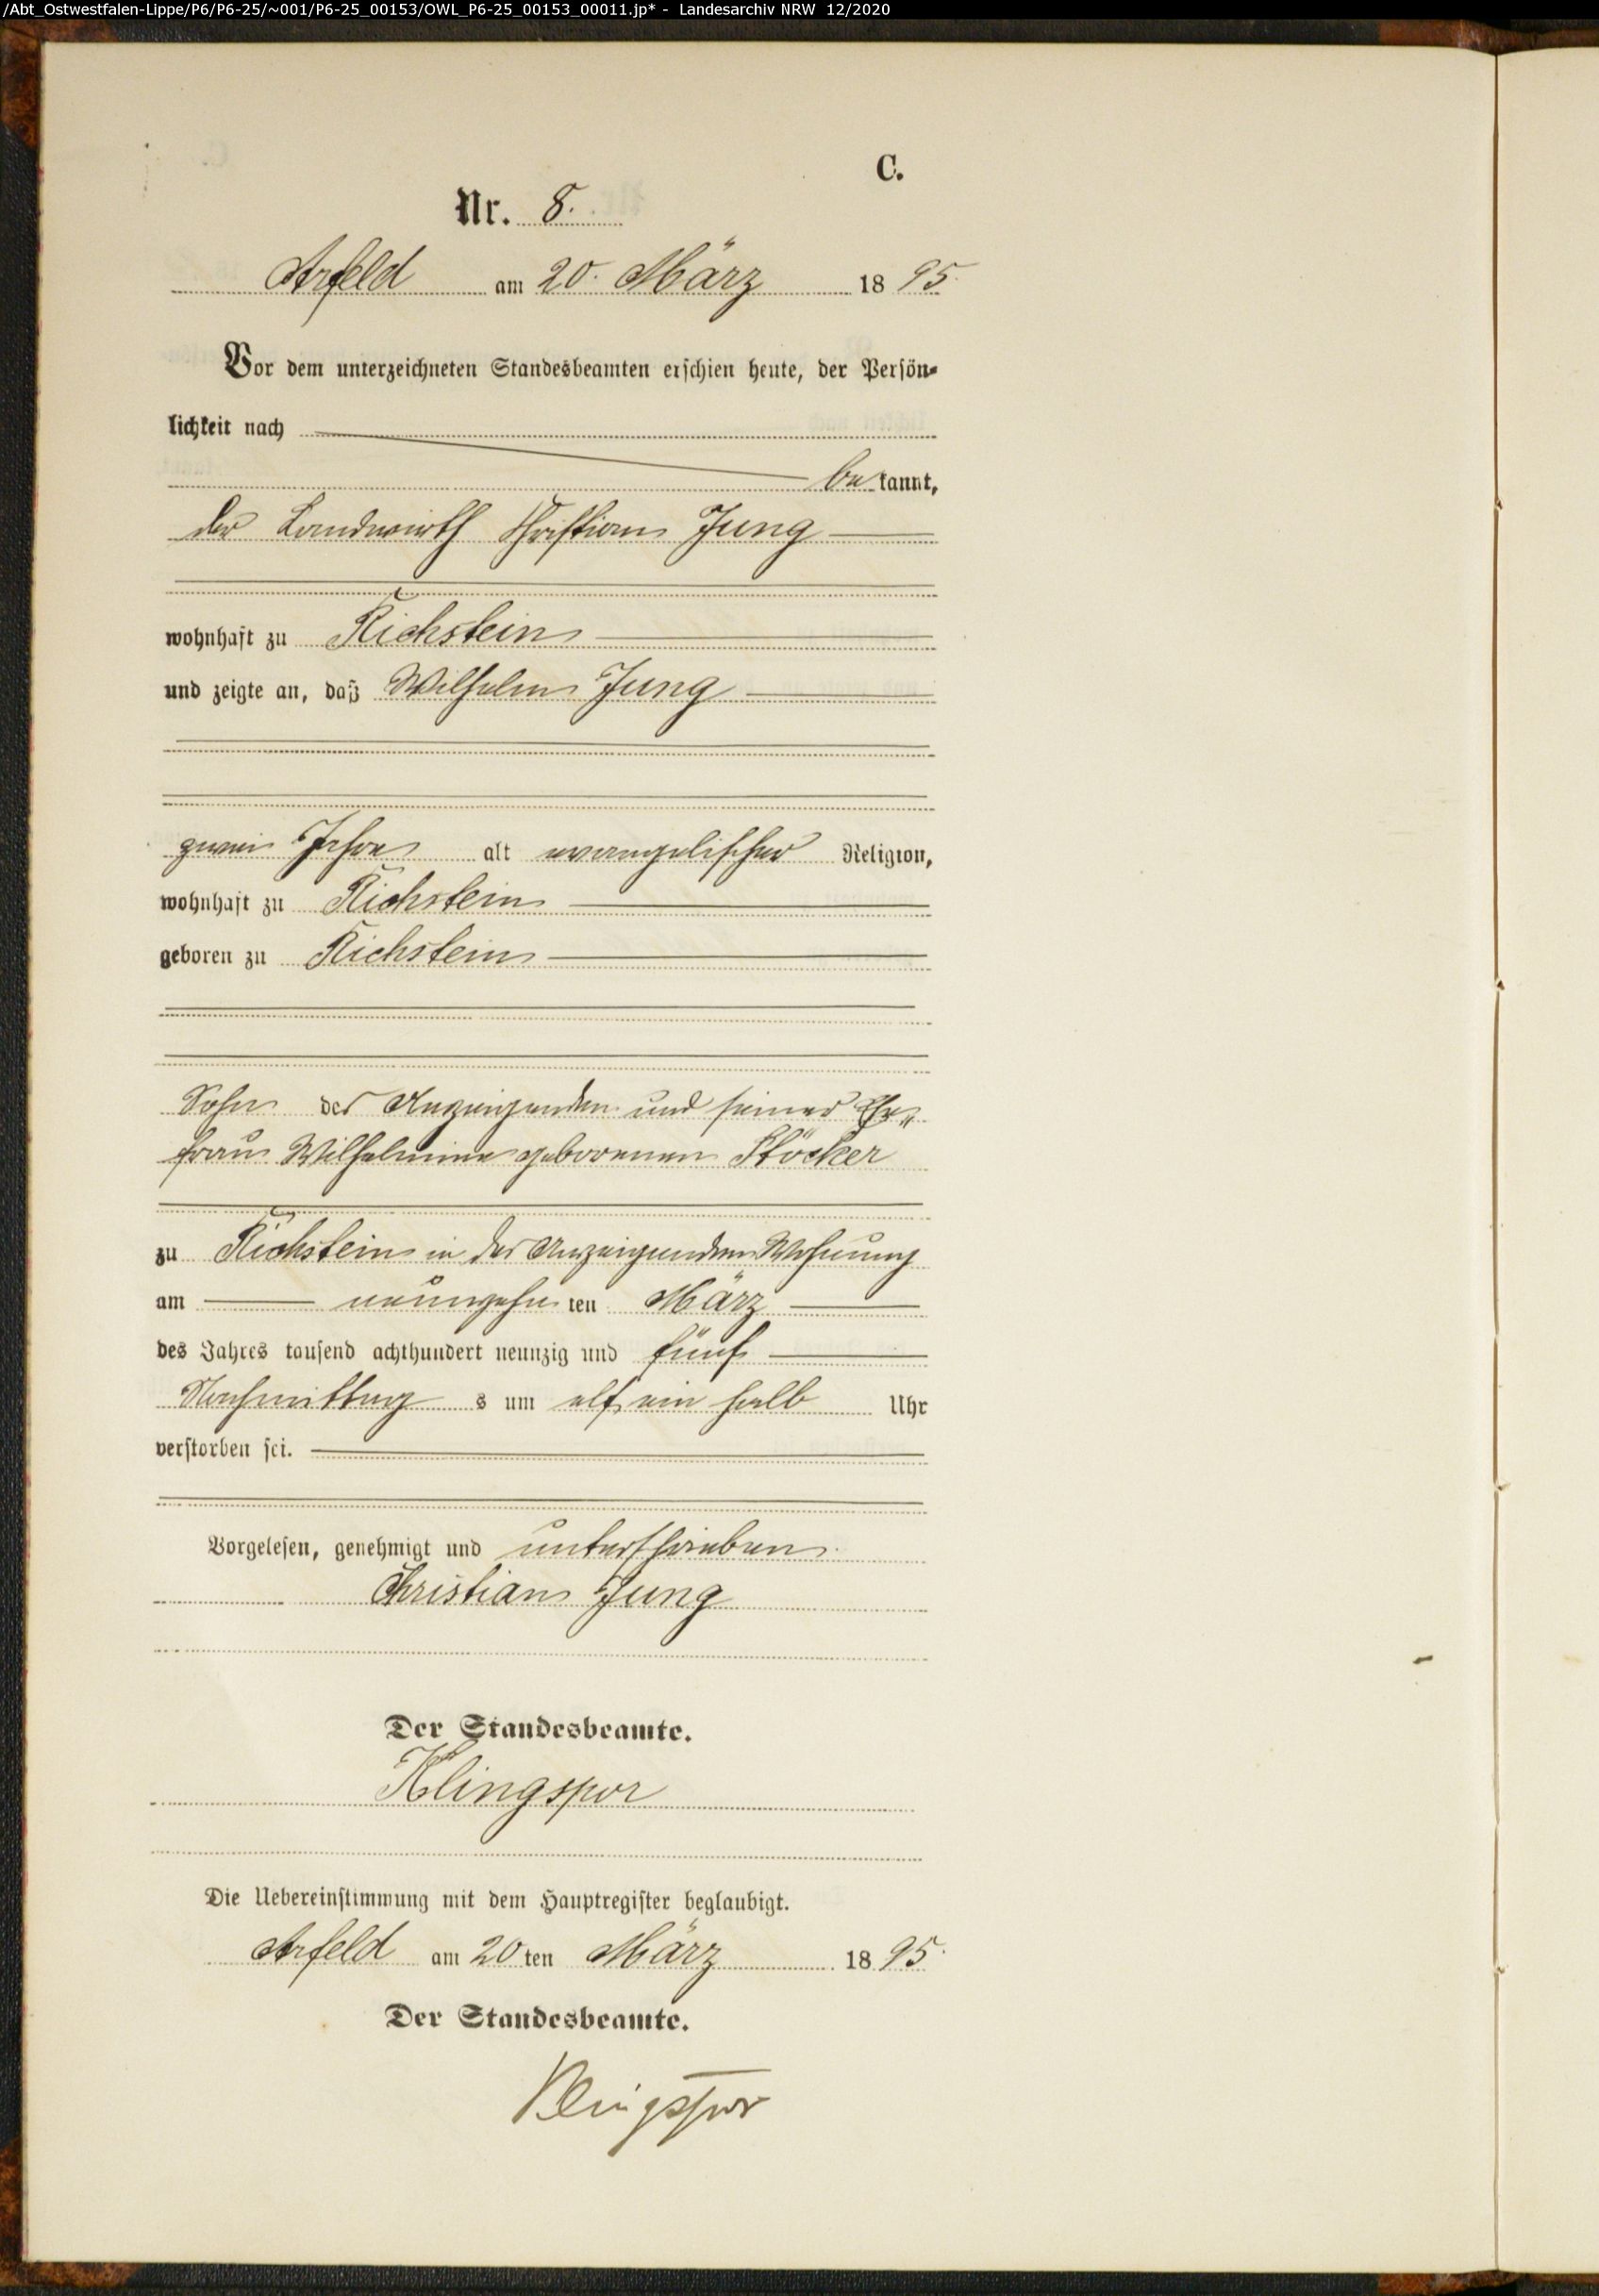 /Abt_Ostwestfalen-Lippe/P6/P6-25/~001/P6-25_00153/OWL_P6-25_00153_00011.jp* - Landesarchiv NRW 12/2020
C.
Nr. 8.
Arfeld am 20. März 1895.
Vor dem unterzeichneten Standesbeamten erschien heute, der Persön-
lichkeit nach
bekannt,
der Landwirth Christian Jung
wohnhaft zu Richstein
und zeigte an, daß Wilhelm Jung
zwei Jahre alt evangelischer Religion,
wohnhaft zu Richstein
geboren zu Richstein
Sohn des Anzeigenden und seiner Ehe-
frau Wilhelmine geborenen Stöcker
zu Richstein in des Anzeigenden Wohnung
am neunzehnten März
des Jahres tausend achthundert neunzig und fünf
Nachmittags um elf ein halb Uhr
verstorben sei.
Vorgelesen, genehmigt und unterschrieben.
Christian Jung
Der Standesbeamte.
Klingspor
Die Uebereinstimmung mit dem Hauptregister beglaubigt.
Arfeld am 20ten März 1895.
Der Standesbeamte.
Klingspor